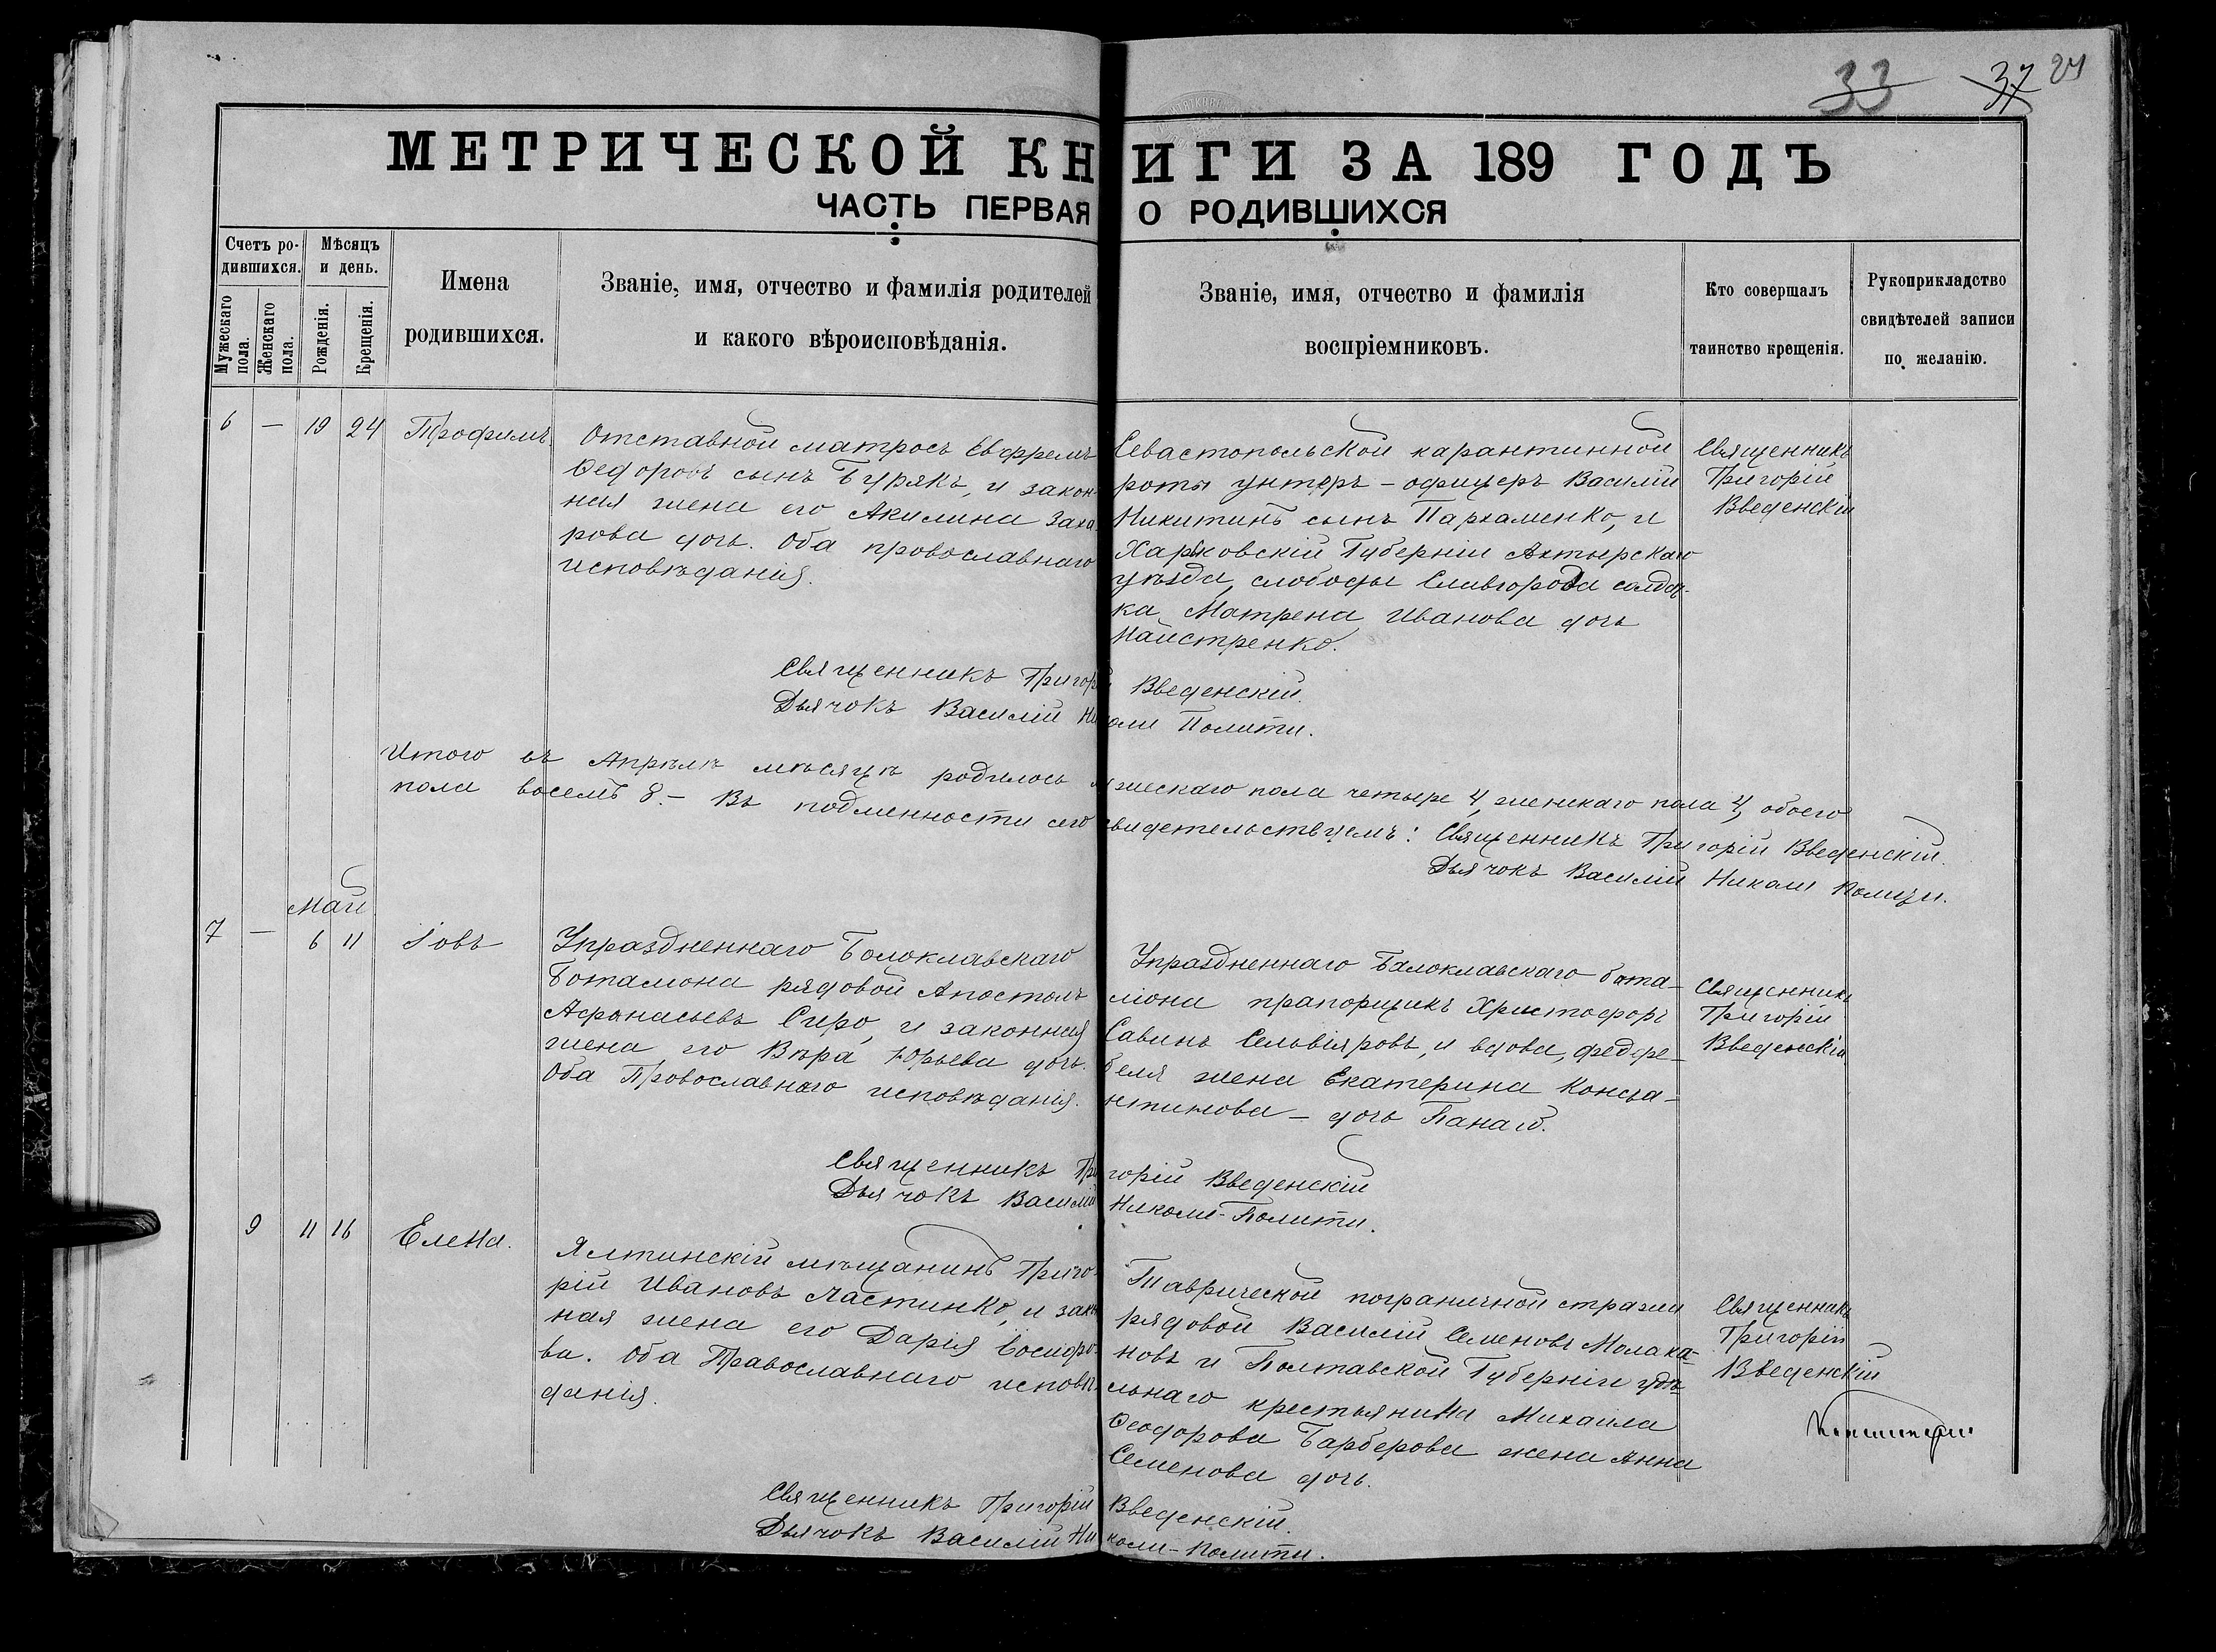 33 37 24
МЕТРИЧЕСКОЙ КНИГИ ЗА 189 ГОДЪ
ЧАСТЬ ПЕРВАЯ О РОДИВШИХСЯ
Счетъ ро-
дившихся.
Мужескаго пола.
Женскаго пола.
Мѣсяцъ
и день.
Рожденія.
Крещенія.
Имена
родившихся.
Званіе, имя, отчество и фамилія родителей
и какого вѣроисповѣданія.
Званіе, имя, отчество и фамилія
воспріемниковъ.
Кто совершалъ
таинство крещенія.
Рукоприкладство
свидѣтелей записи
по желанію.
6 — 19 24 Трофимъ
Отставной матросъ Евфремъ
Ѳедоровъ сынъ Бурякъ, и закон-
ная жена его Акилина Заха
рова дочь. Оба провославнаго
исповѣданія.
Севастопольской карантинной
роты унтеръ-офицеръ Василій
Никитинъ сынъ Пархаменко, и
Харьковскій Губерніи Ахтырскаго
уѣзда, слободы Славгорода солдат-
ка Матрена Иванова дочь
Майстренко.
Священникъ
Григорій
Введенскій
Священникъ Григорій Введенскій.
Дьячокъ Василій Николи Полити.
Итого въ Апрѣлѣ мѣсяцѣ родилось мужескаго пола четыре 4, женскаго пола 4, обоего
пола восемь 8.— Въ подлинности сего свидетельствуемъ: Священникъ Григорій Введенскій.
Дьячокъ Василий Николи Полити.
Май
7 — 6 11 Іовъ
Упраздненнаго Болоклавскаго
Боталиона рядовой Апостолъ
Афанасьевъ Сиро, и законная
жена его Вѣра Юрьева дочь.
Оба Провославнаго исповѣданія.
Упраздненнаго Балоклавскаго бата-
ліона прапорщикъ Христофоръ
Савинъ Сельвіяровъ, и вдова, федфе-
беля жена Екатерина Конста-
нтинова - дочь Панаіо.
Священникъ
Григорій
Введенскій
Священникъ Григорій Введенскій
Дьячокъ Василій Николи-Полити.
9 11 16 Елена.
Ялтинскій мѣщанинъ Григо-
рій Ивановъ Ластинко, и закон
ная жена его Дарія Іосифо-
ва. Оба Православнаго исповѣ-
данія.
Таврической пограничной стражи
рядовой Василій Семеновъ Молака-
новъ и Полтавской Губерніи удѣ-
льнаго крестьянина Михаила
Ѳеодорова Барберова жена Анна
Семенова дочь.
Священникъ
Григорій
Введенскій
Священникъ Григорій Введенскій.
Дьячокъ Василій Николи-Полити.